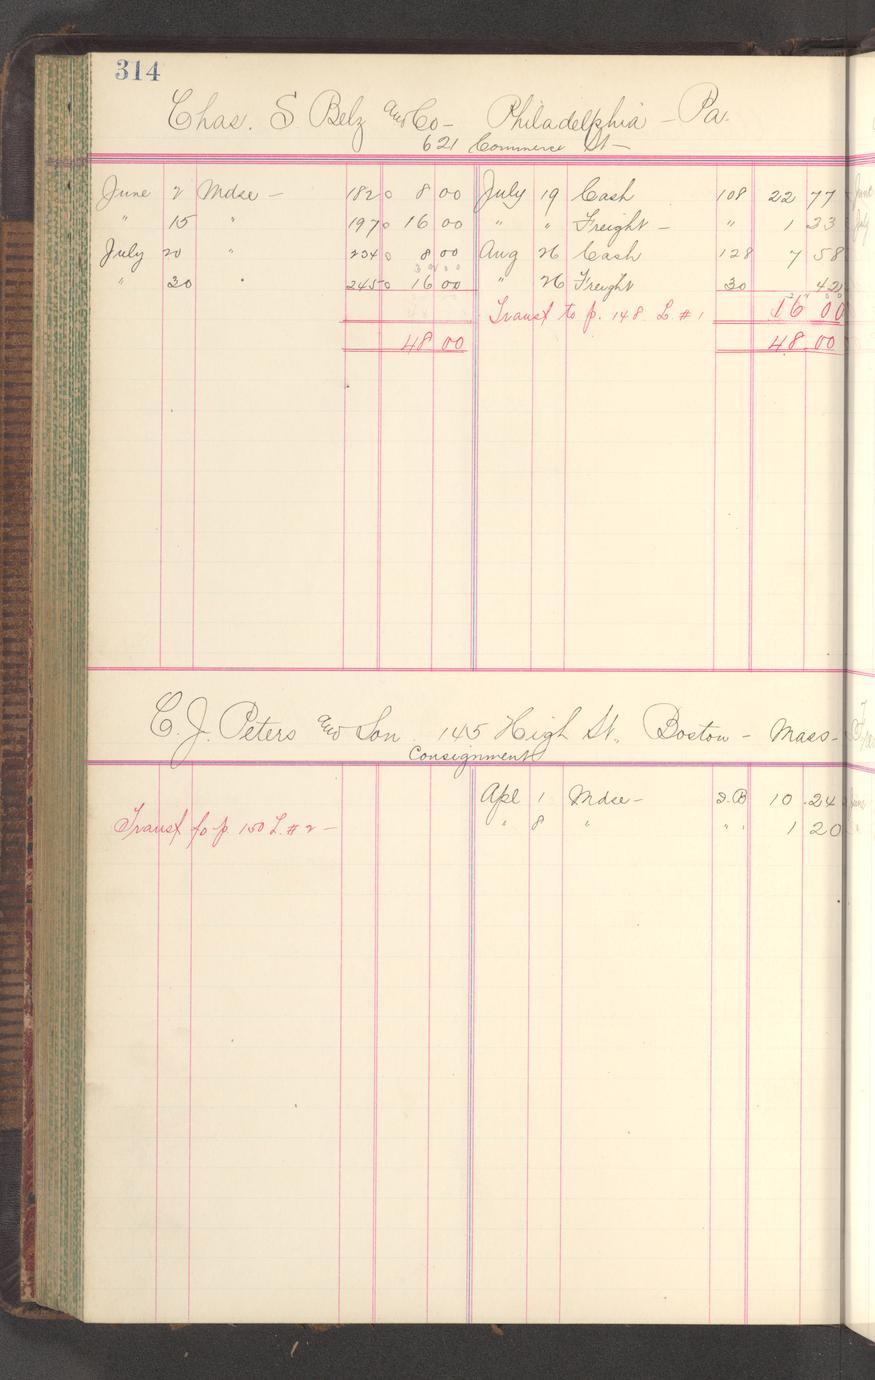 314
Chas. S Belz and Co- Philadelphia - Pa.
621 Commerce St-
June 2 Mdse - 182 8 00 July 19 Cash 108 22 77
" 15 " 197 16 00 " " Freight - " 1 23
July 20 " 234 8 00 Aug 26 Cash 128 7 58
" 30 " 245 16 00 " 26 Freight 30 42
Transf to p. 148 L. # 1 16 00
48 00 48 00
C. J. Peters and Son 145 High St. Boston - Mass-
Consignment
Apl 1 Mdse - D.B 10 24
Transf to p. 150 L. # 2 - " 8 " " " 1 20